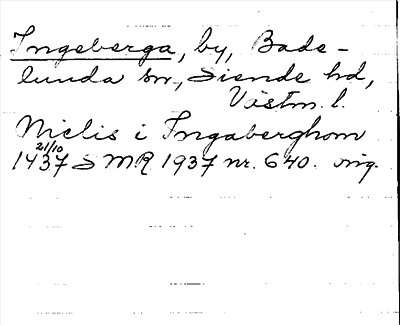 Ingeberga, by, Bade-
lunda sn., Siende hd,
Västm. l.
Niclis i Ingaberghom
21/10
1437 SMR 1937 nr. 640. orig.